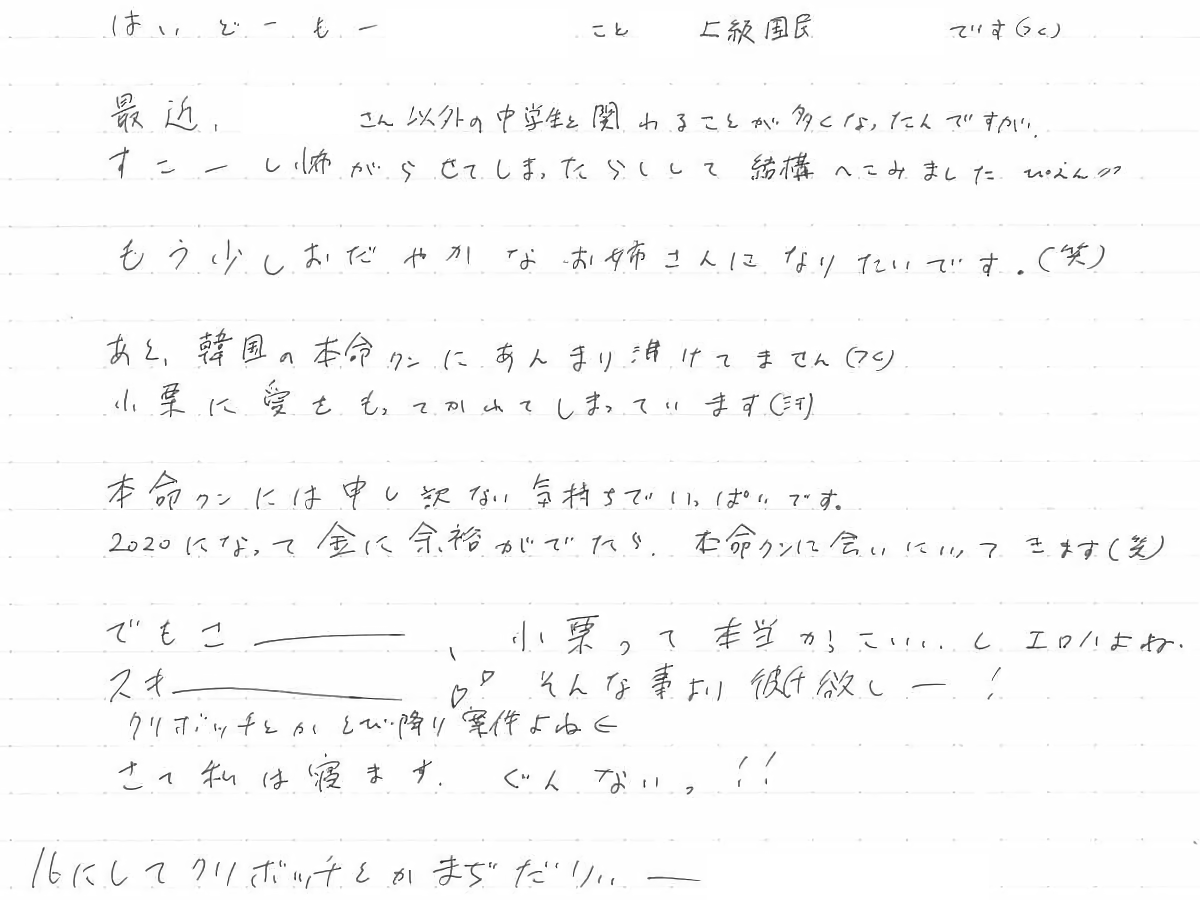 はいどーもー こと 上級国民 です(つく)
最近、 さん以外の中学生と関わることが多くなったんですが、
すこーし怖がらせてしまったらしくて結構へこみました ぴえん
もう少しおだやかなお姉さんになりたいです。(笑)
あと、韓国の本命クンにあんまり沸けてません(つく)
小栗に愛をもってかれてしまっています(汗)
本命クンには申し訳ない気持ちでいっぱいです。
2020になって金に余裕がでたら、本命クンに会いにいってきます(笑)
でもさー、小栗って本当かっこいいし エロいよね。
スキー♡♡ そんな事より彼氏欲しー!
クリボッチとかとび降り案件よね←
さて私は寝ます。ぐんないっ!!
16にしてクリボッチとかまぢだりぃー